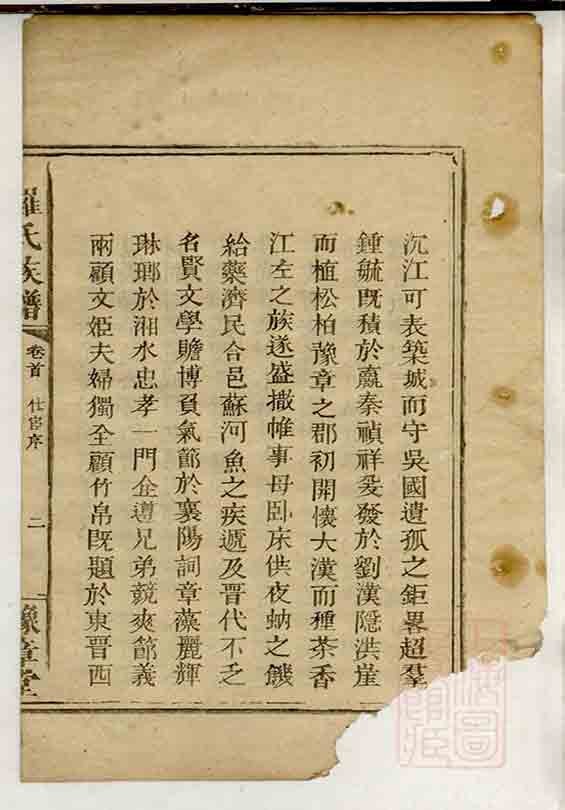 沉江可表築城而守吳國遺孤之鉅畧超羣
鍾毓既積於嬴秦禎祥爰發於劉漢隱洪崖
而植松柏豫章之郡初開懷大漢而種茶香
江左之族遂盛撒帷事母卧床供夜蚋之饑
給藥濟民合邑蘇河魚之疾遞及晋代不乏
名賢文學贍博負氣節於襄陽詞章藻麗輝
琳瑯於湘水忠孝一門企遵兄弟競爽節義
兩顧文姬夫婦獨全顧竹帛既題於東晋西
羅氏族譜
卷首 仕宦序
二
豫章堂